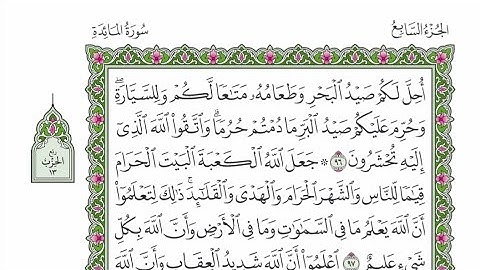 الجُزْءُ السَّابِعُ
سُورَةُ المَائِدَةِ
أُحِلَّ لَكُمْ صَيْدُ الْبَحْرِ وَطَعَامُهُ مَتَاعًا لَّكُمْ وَلِلسَّيَّارَةِ
وَحُرِّمَ عَلَيْكُمْ صَيْدُ الْبَرِّ مَا دُمْتُمْ حُرُمًا وَاتَّقُوا اللَّهَ الَّذِي
إِلَيْهِ تُحْشَرُونَ ٩٦ ۞ جَعَلَ اللَّهُ الْكَعْبَةَ الْبَيْتَ الْحَرَامَ
قِيَامًا لِّلنَّاسِ وَالشَّهْرَ الْحَرَامَ وَالْهَدْيَ وَالْقَلَائِدَ ذَٰلِكَ لِتَعْلَمُوا
أَنَّ اللَّهَ يَعْلَمُ مَا فِي السَّمَاوَاتِ وَمَا فِي الْأَرْضِ وَأَنَّ اللَّهَ بِكُلِّ
شَيْءٍ عَلِيمٌ ٩٧ اعْلَمُوا أَنَّ اللَّهَ شَدِيدُ الْعِقَابِ وَأَنَّ اللَّهَ
ربع
الحزب
١٣